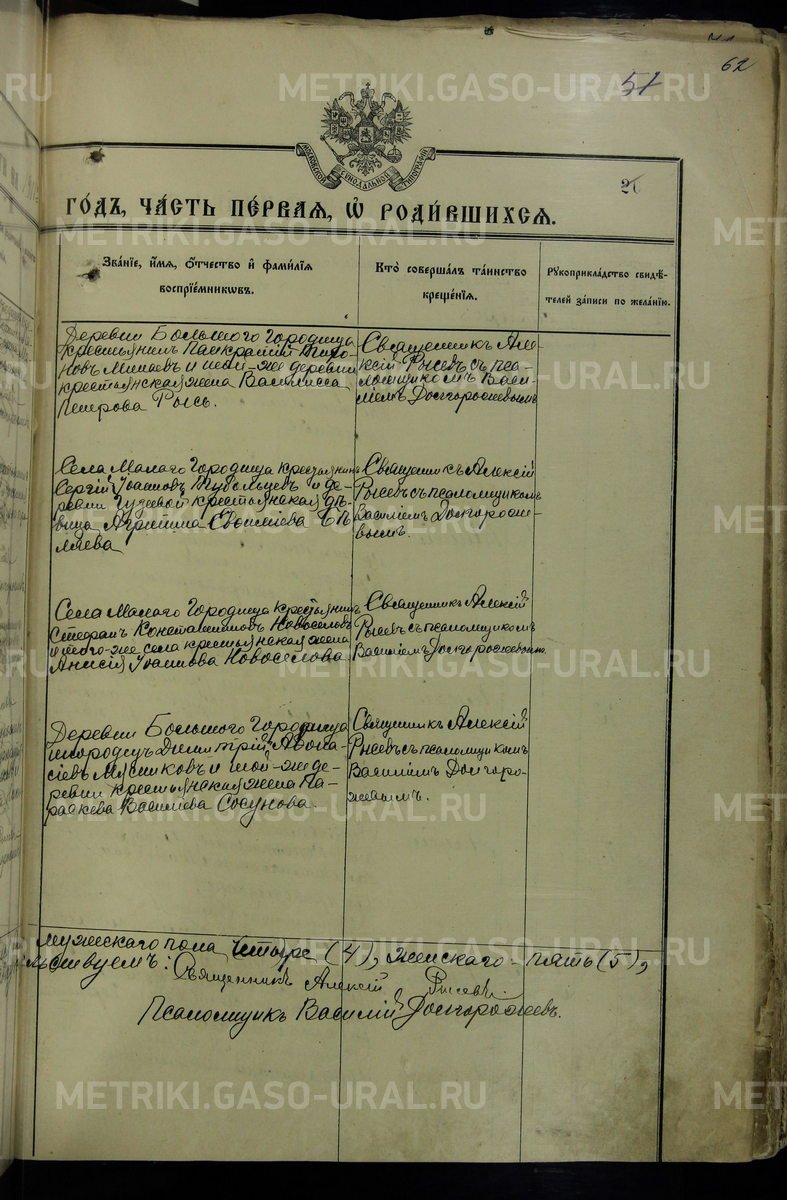 62
51
МОСКОВСКОЙ СѴНОДАЛЬНОЙ ТИПОГРАФІИ
20
ГО́ДЪ, ЧА́СТЬ ПЕ́РВАЯ, Ѡ РОДИ́ВШИХСЯ.
Зва́нїе, и́мя, о́тчество и҆ фами́лїя воспрїе́мниковъ.
Кто̀ соверша́лъ та́инство креще́нїя.
Рꙋкоприкла́дство свидѣ́телей за́писи по жела́нїю.
Деревни Большого Городища
крестьянинъ Панкратій Тито-
новъ Минаевъ и той-же деревни
крестьянская жена Василисса
Петрова Рысь.
Священникъ Але-
ксій Рысевъ съ пса-
ломщикомъ Васи-
ліемъ Долгорожевымъ
Села Малаго Городища крестьянинъ
Сергій Іоанновъ Тобольцевъ и де-
ревни Гузеевой крестьянская дѣ-
вица Агриппина
Священникъ Алексій
Рысевъ съ псаломщикомъ
Василіемъ Долгороже-
вымъ.
Села Малаго Городища крестьянинъ
Стефанъ Константиновъ Новоселовъ
и того-же села крестьянская жена
Анисія Іоаннова Новоселова
Священникъ Алексій
Рысевъ съ псаломщикомъ
Василіемъ Долгорожевымъ.
Деревни Большого Городища
инородецъ Димитрій Аѳона-
сіевъ Мясниковъ и той-же де-
ревни крестьянская жена Па-
раскева Василіева Сосунова.
Священникъ Алексій
Рысевъ съ псаломщикомъ
Василіемъ Долгоро-
жевымъ.
мужескаго пола четыре (4), женскаго - пять (5),
Священникъ Алексій Рысевъ.
Псаломщикъ Василій Долгорожевъ.
METRIKI.GASO-URAL.RU